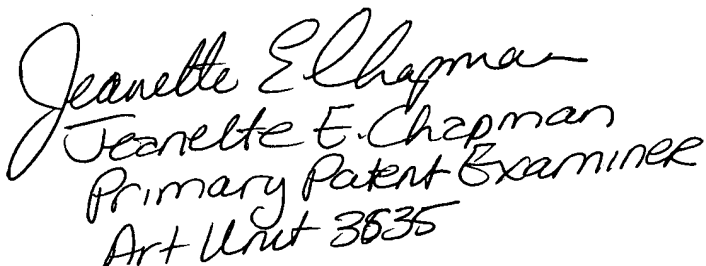 Jeanette E Chapman
Jeanette E. Chapman
Primary Patent Examiner
Art Unit 3635